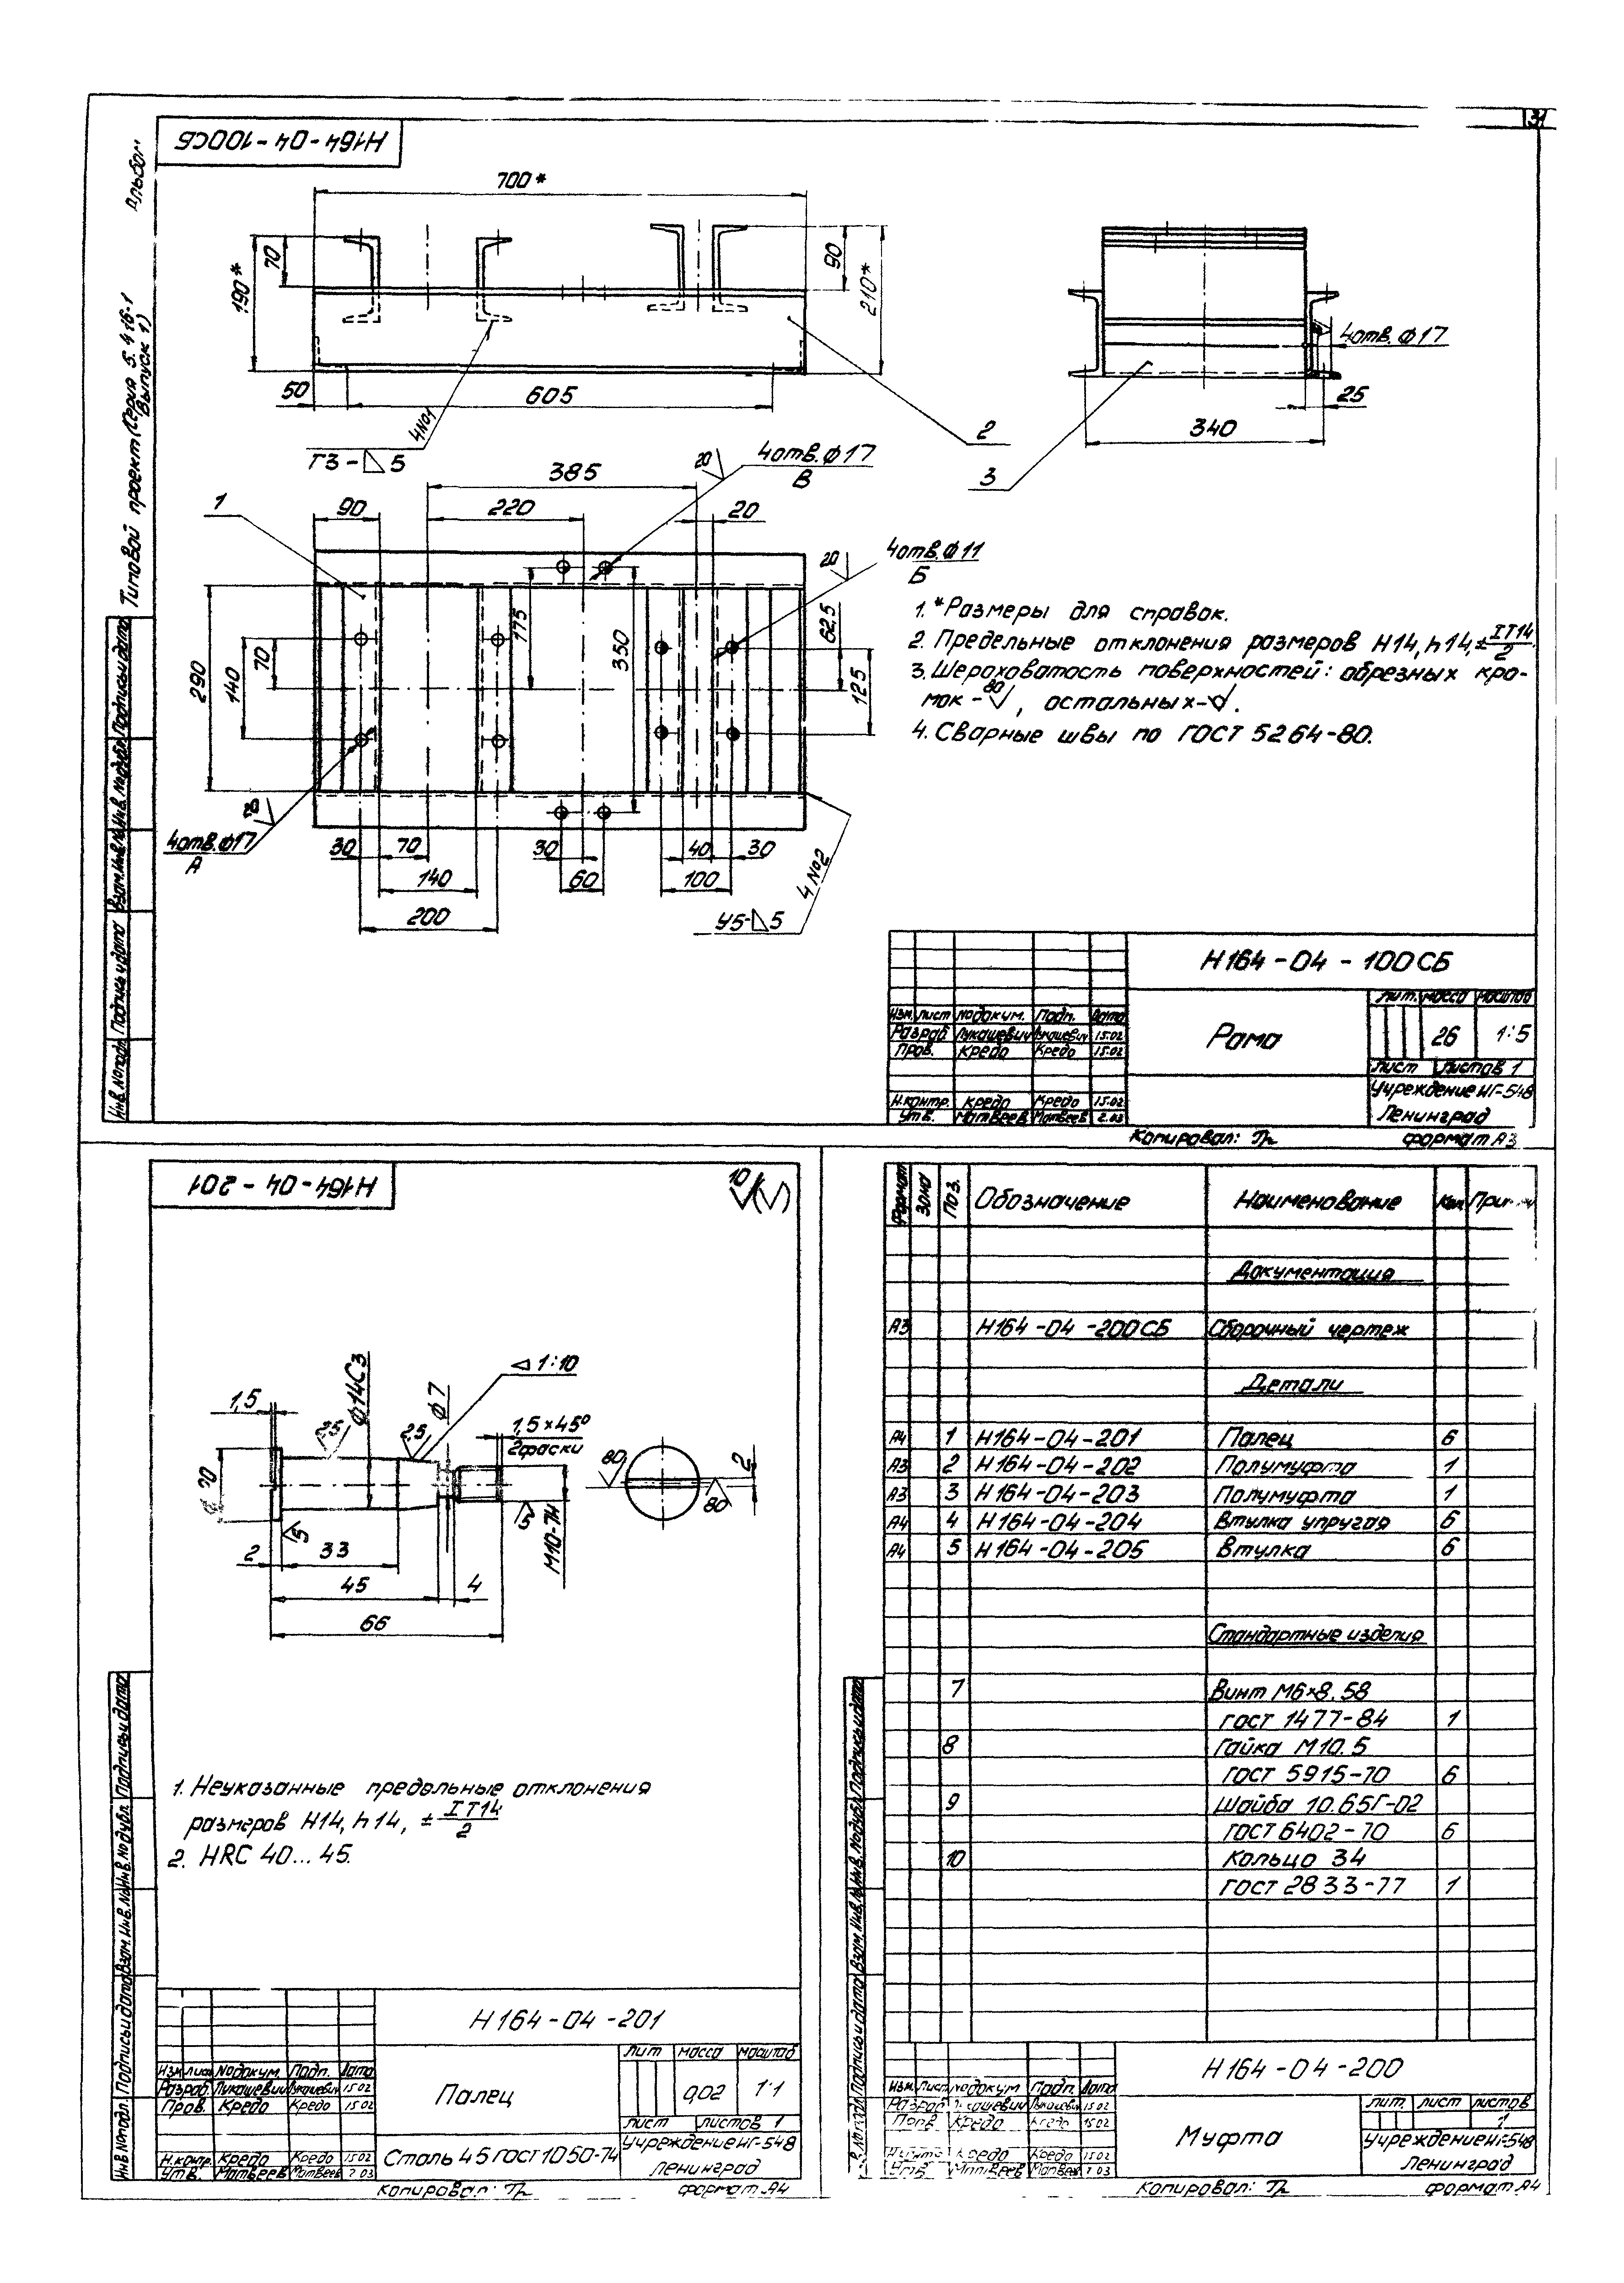 31
Н164-04-100СБ
Альбом
Типовой проект (Серия 5.416-1
Выпуск 1)
700*
190*
70
90
210*
50
605
Т3-◺5
4№1
2
3
4отв.ф17
25
340
1
90
385
220
20
20
4отв.ф17
В
20
4отв.ф11
Б
290
140
70
175
350
62,5
125
20
4отв.ф17
А
30
70
140
200
30
60
40
30
100
У5-◺5
4№2
1.*Размеры для справок.
2. Предельные отклонения размеров Н14, h14, ± IT14/2
3. Шероховатость поверхностей: обрезных кро-
мок - 80√, остальных-√.
4. Сварные швы по ГОСТ 5264-80.
Н164-04-100СБ
Рама
Лит. Масса Масштаб
26 1:5
Лист Листов 1
Учреждение ИГ-548
Ленинград
Изм. Лист №докум. Подп. Дата
Разраб. Лукашевич Лукашевич 15.02
Пров. Кредо Кредо 15.02
Н.контр. Кредо Кредо 15.02
Утв. Матвеев Матвеев 2.03
Копировал: Формат А3
Инв.№подл. Подпись и дата Взам.инв.№ Инв.№дубл. Подпись и дата
Н164-04-201
10√(√)
1,5
ф14С3
2,5
2,5
ф7
1:10
1,5×45°
2фаски
ф20
5
2
33
45
4
66
5
М10-7Н
80
80
2
1. Неуказанные предельные отклонения
размеров Н14, h14, ± IT14/2
2. HRC 40...45.
Н164-04-201
Палец
Лит Масса Масштаб
0,02 1:1
Лист Листов 1
Сталь 45 ГОСТ 1050-74
Учреждение ИГ-548
Ленинград
Изм. Лист №докум. Подп. Дата
Разраб. Лукашевич Лукашевич 15.02
Пров. Кредо Кредо 15.02
Н.контр. Кредо Кредо 15.02
Утв. Матвеев Матвеев 2.03
Копировал: Формат А4
Инв.№подл. Подпись и дата Взам.инв.№ Инв.№дубл. Подпись и дата
Формат Зона Поз. Обозначение Наименование Кол
Документация
А3 Н164-04-200СБ Сборочный чертеж
Детали
А4 1 Н164-04-201 Палец 6
А3 2 Н164-04-202 Полумуфта 1
А3 3 Н164-04-203 Полумуфта 1
А4 4 Н164-04-204 Втулка упругая 6
А4 5 Н164-04-205 Втулка 6
Стандартные изделия
7 Винт М6×8.58
ГОСТ 1477-84 1
8 Гайка М10.5
ГОСТ 5915-70 6
9 Шайба 10.65Г-02
ГОСТ 6402-70 6
10 Кольцо 34
ГОСТ 2833-77 1
Н164-04-200
Муфта
Лит. Лист Листов
1
Учреждение ИГ-548
Ленинград
Изм. Лист №докум Подп. Дата
Разраб Лукашевич Лукашевич 15.02
Пров Кредо Кредо 15.02
Н.контр Кредо Кредо 15.02
Утв Матвеев Матвеев 2.03
Копировал: Формат А4
Подпись и дата Взам.инв.№ Инв.№дубл. Подпись и дата